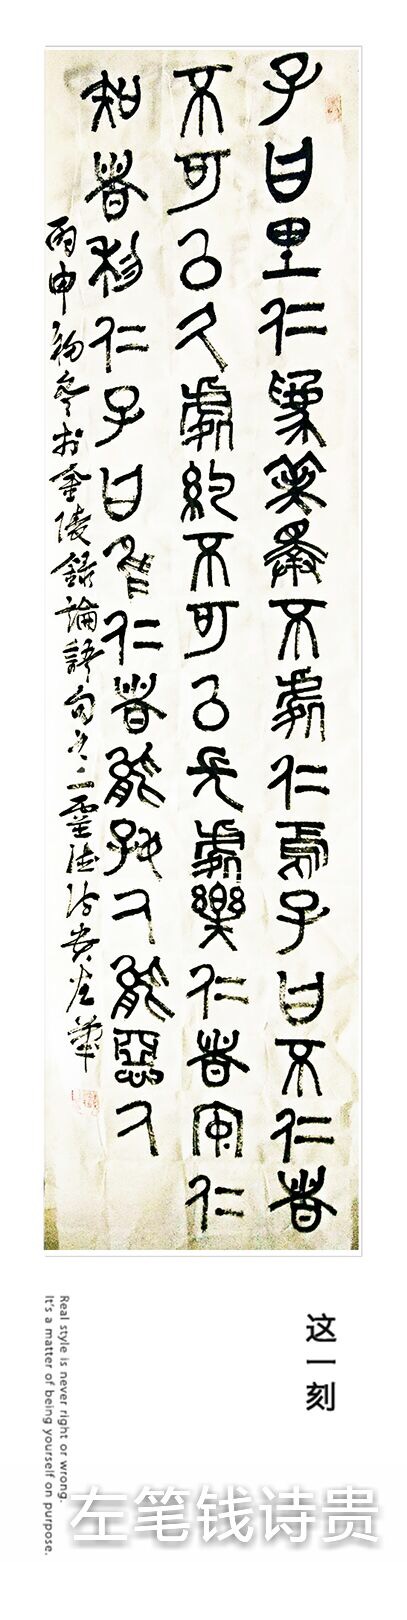 子曰里仁為美擇不處仁焉子曰不仁者
不可以久處約不可以長處樂仁者安仁
知者利仁子曰唯仁者能好人能惡人
丙申初冬於金陵錄論語句之二詩貴左筆
这一刻
Real style is never right or wrong.
It's a matter of being yourself on purpose.
左笔钱诗贵